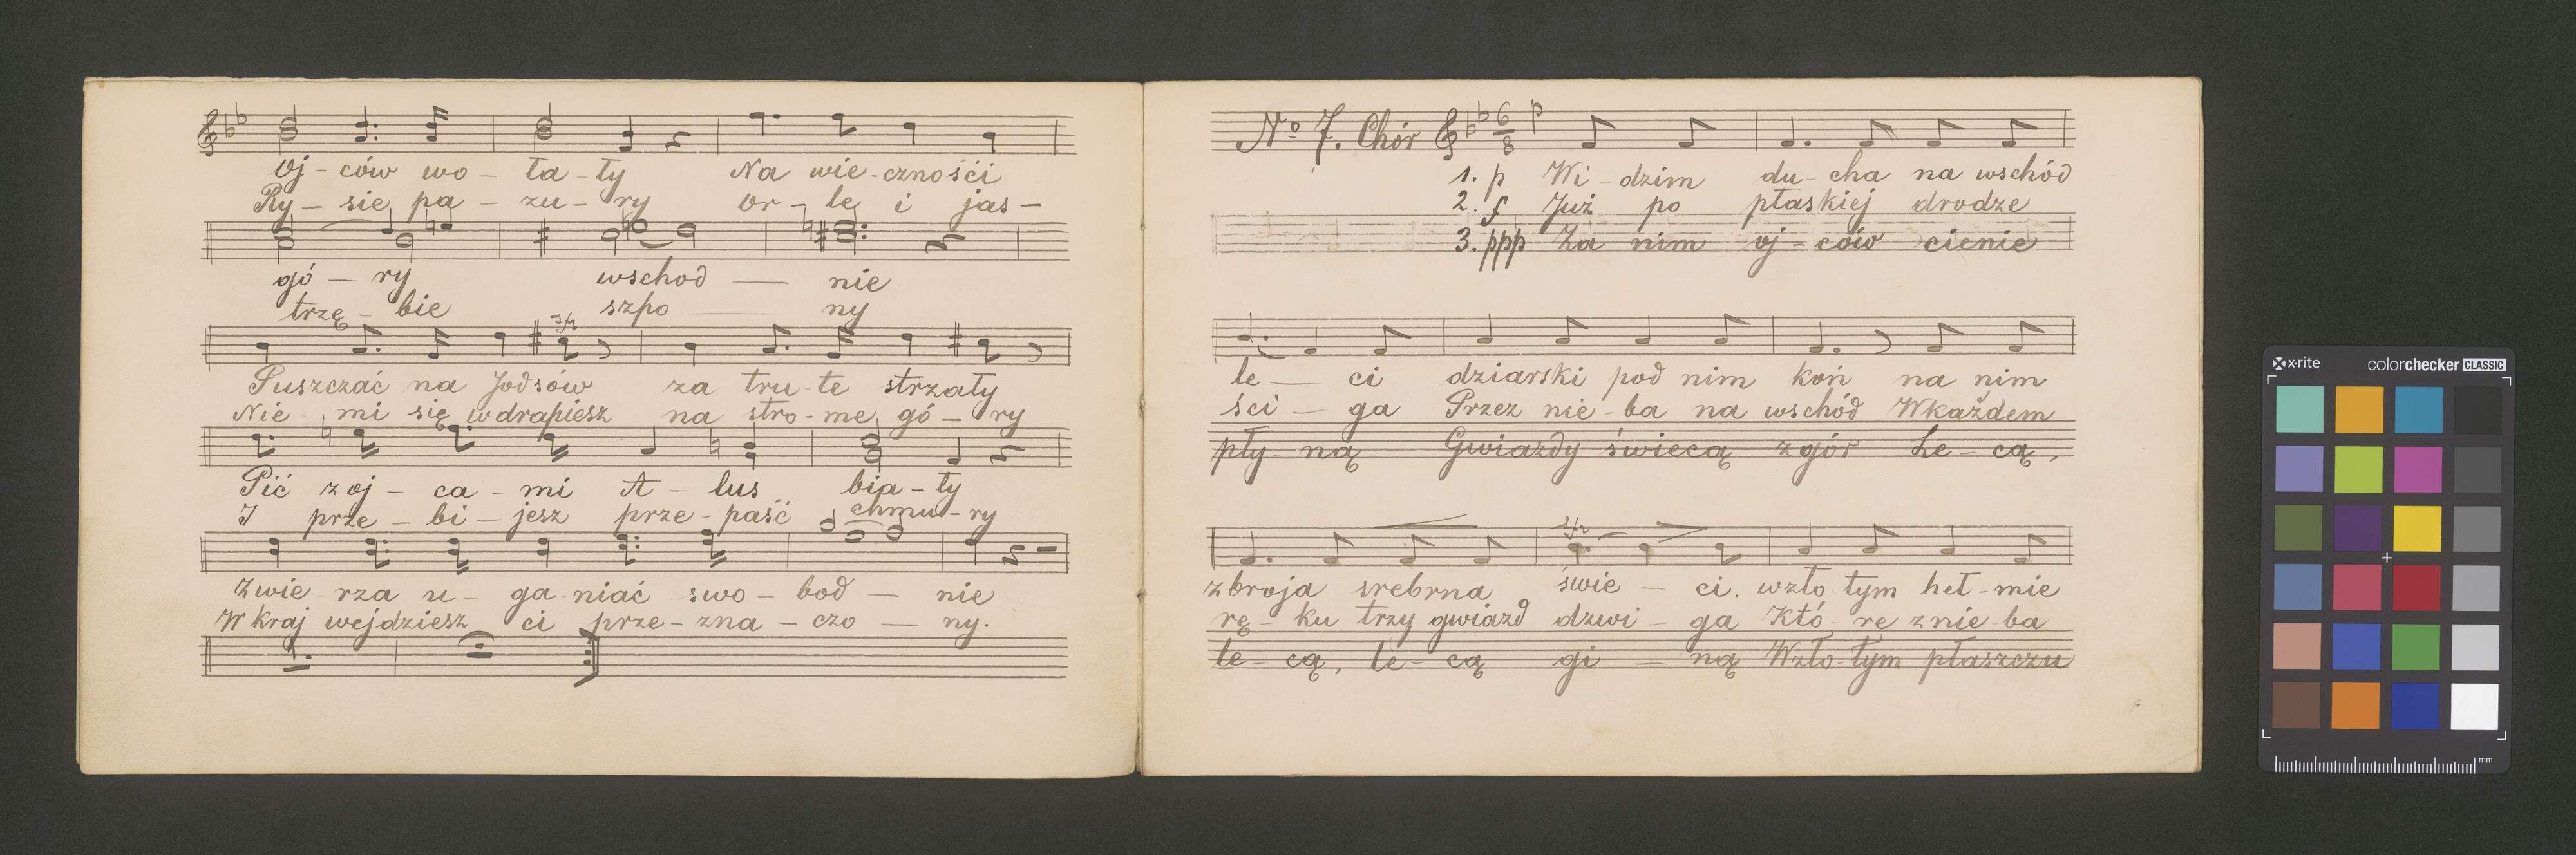 Oj - ców wo - ła - ły Na wie - cznośći
Ry - sie pa - zu - ry Or - le i jas -
gó - ry wschod - nie
trzę - bie szpo - ny
sfz
Puszczać na Jodsów za tru - te strzały
Nie - mi się wdrapiesz na stro - me gó - ry
Pić z oj - ca - mi A - lus bia - ły
I prze - bi - jesz prze - paść chmu - ry
Zwie - rza u - ga - niać swo - bod - nie
W kraj wejdziesz ci prze - zna - czo - ny.
No 7. Chór 6/8 p
1. p Wi - dzim du - cha na wschód
2. f Już po płaskiej drodze
3. ppp Za nim oj - ców cienie
le - ci dziarski pod nim koń na nim
ści - ga Przez nie - ba na wschód W każdem
pły - ną Gwiazdy świecą z gór Le - cą,
sfz
zbroja srebrna świe - ci. w zło - tym heł - mie
rę - ku trzy gwiazd dzwi - ga Któ - re z nie - ba
le - cą, le - cą gi - ną W zło - tym płaszczu
x-rite colorchecker CLASSIC
mm